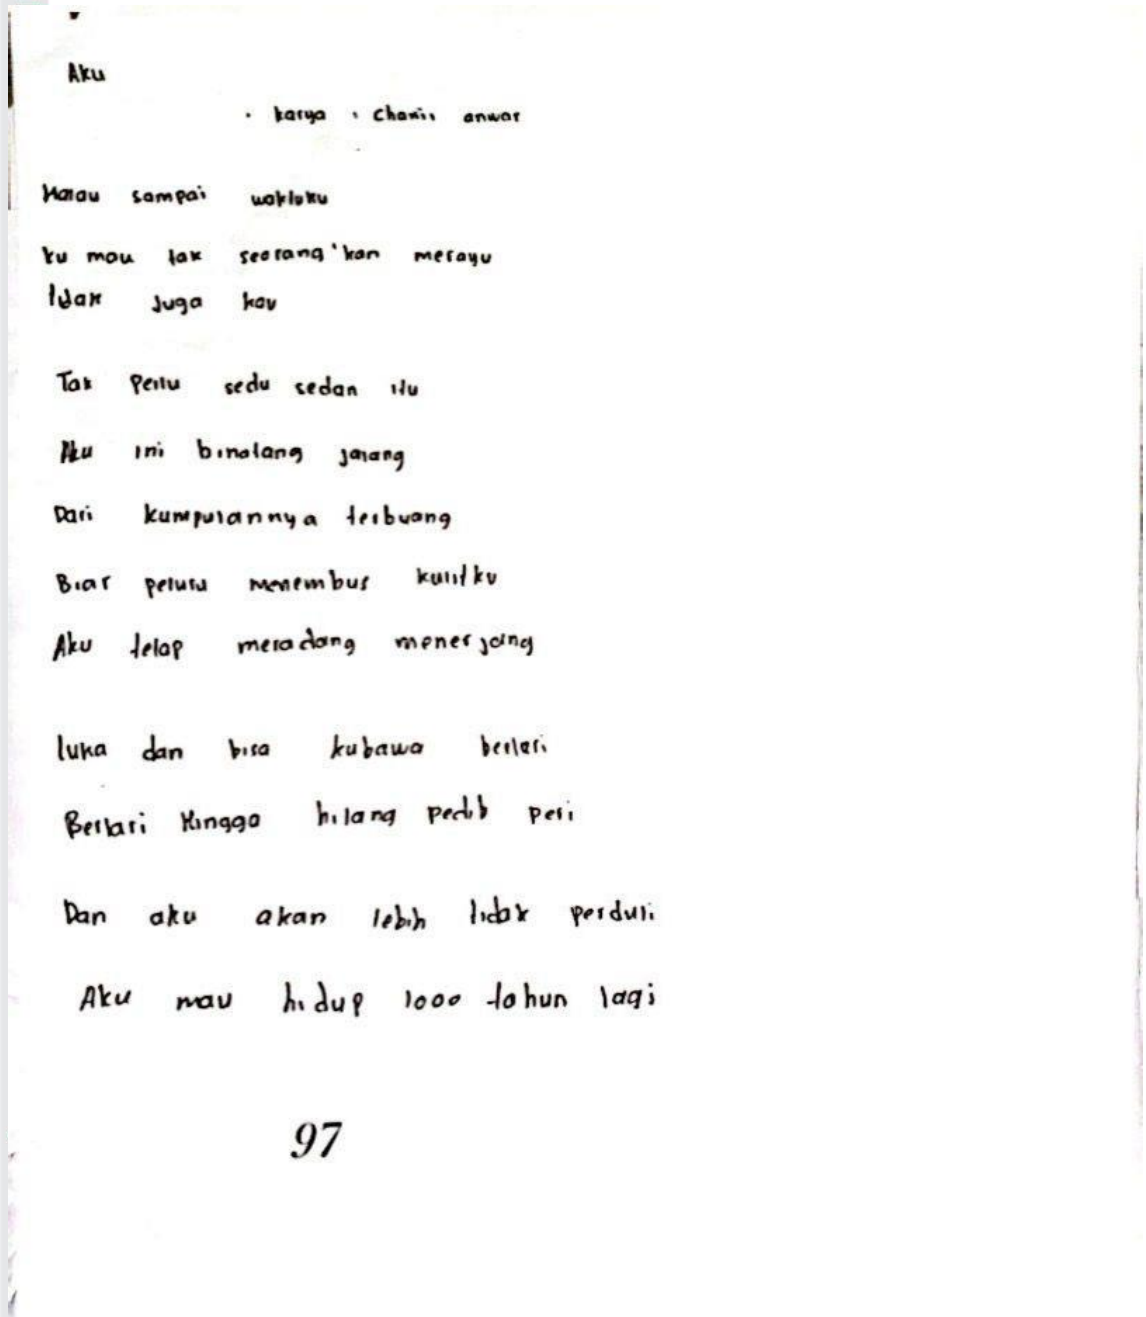 Aku
· karya : Chairil anwar
Kalau sampai waktuku
ku mau tak seorang'kan merayu
tidak juga kau
Tak Perlu sedu sedan itu
Aku ini binatang jalang
Dari kumpulannya terbuang
Biar peluru menembus kulitku
Aku tetap meradang menerjang
luka dan bisa kubawa berlari
Berlari Hingga hilang pedih peri
Dan aku akan lebih tidak perduli
Aku mau hidup 1000 tahun lagi
97